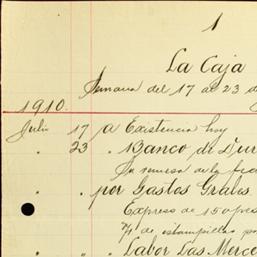 1
La Caja
Semana del 17 al 23 de
1910.
Julio 17 a Existencia hoy
" 23 " Banco de Dur
Su remesa de la fecha
" " por Gastos Grales
Express de 150 pesos
" " Labor Las Merce